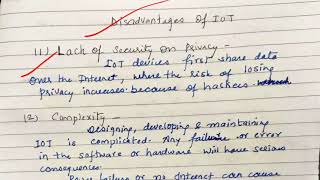 Disadvantages Of IoT
(1) Lack of Security on Privacy -
IoT devices first share data
over the Internet, where the risk of losing
privacy increases because of hackers
(2) Complexity -
Designing, developing & maintaining
IoT is complicated. Any failure or error
in the software or hardware will have serious
consequences.
Power failure or no Internet can cause